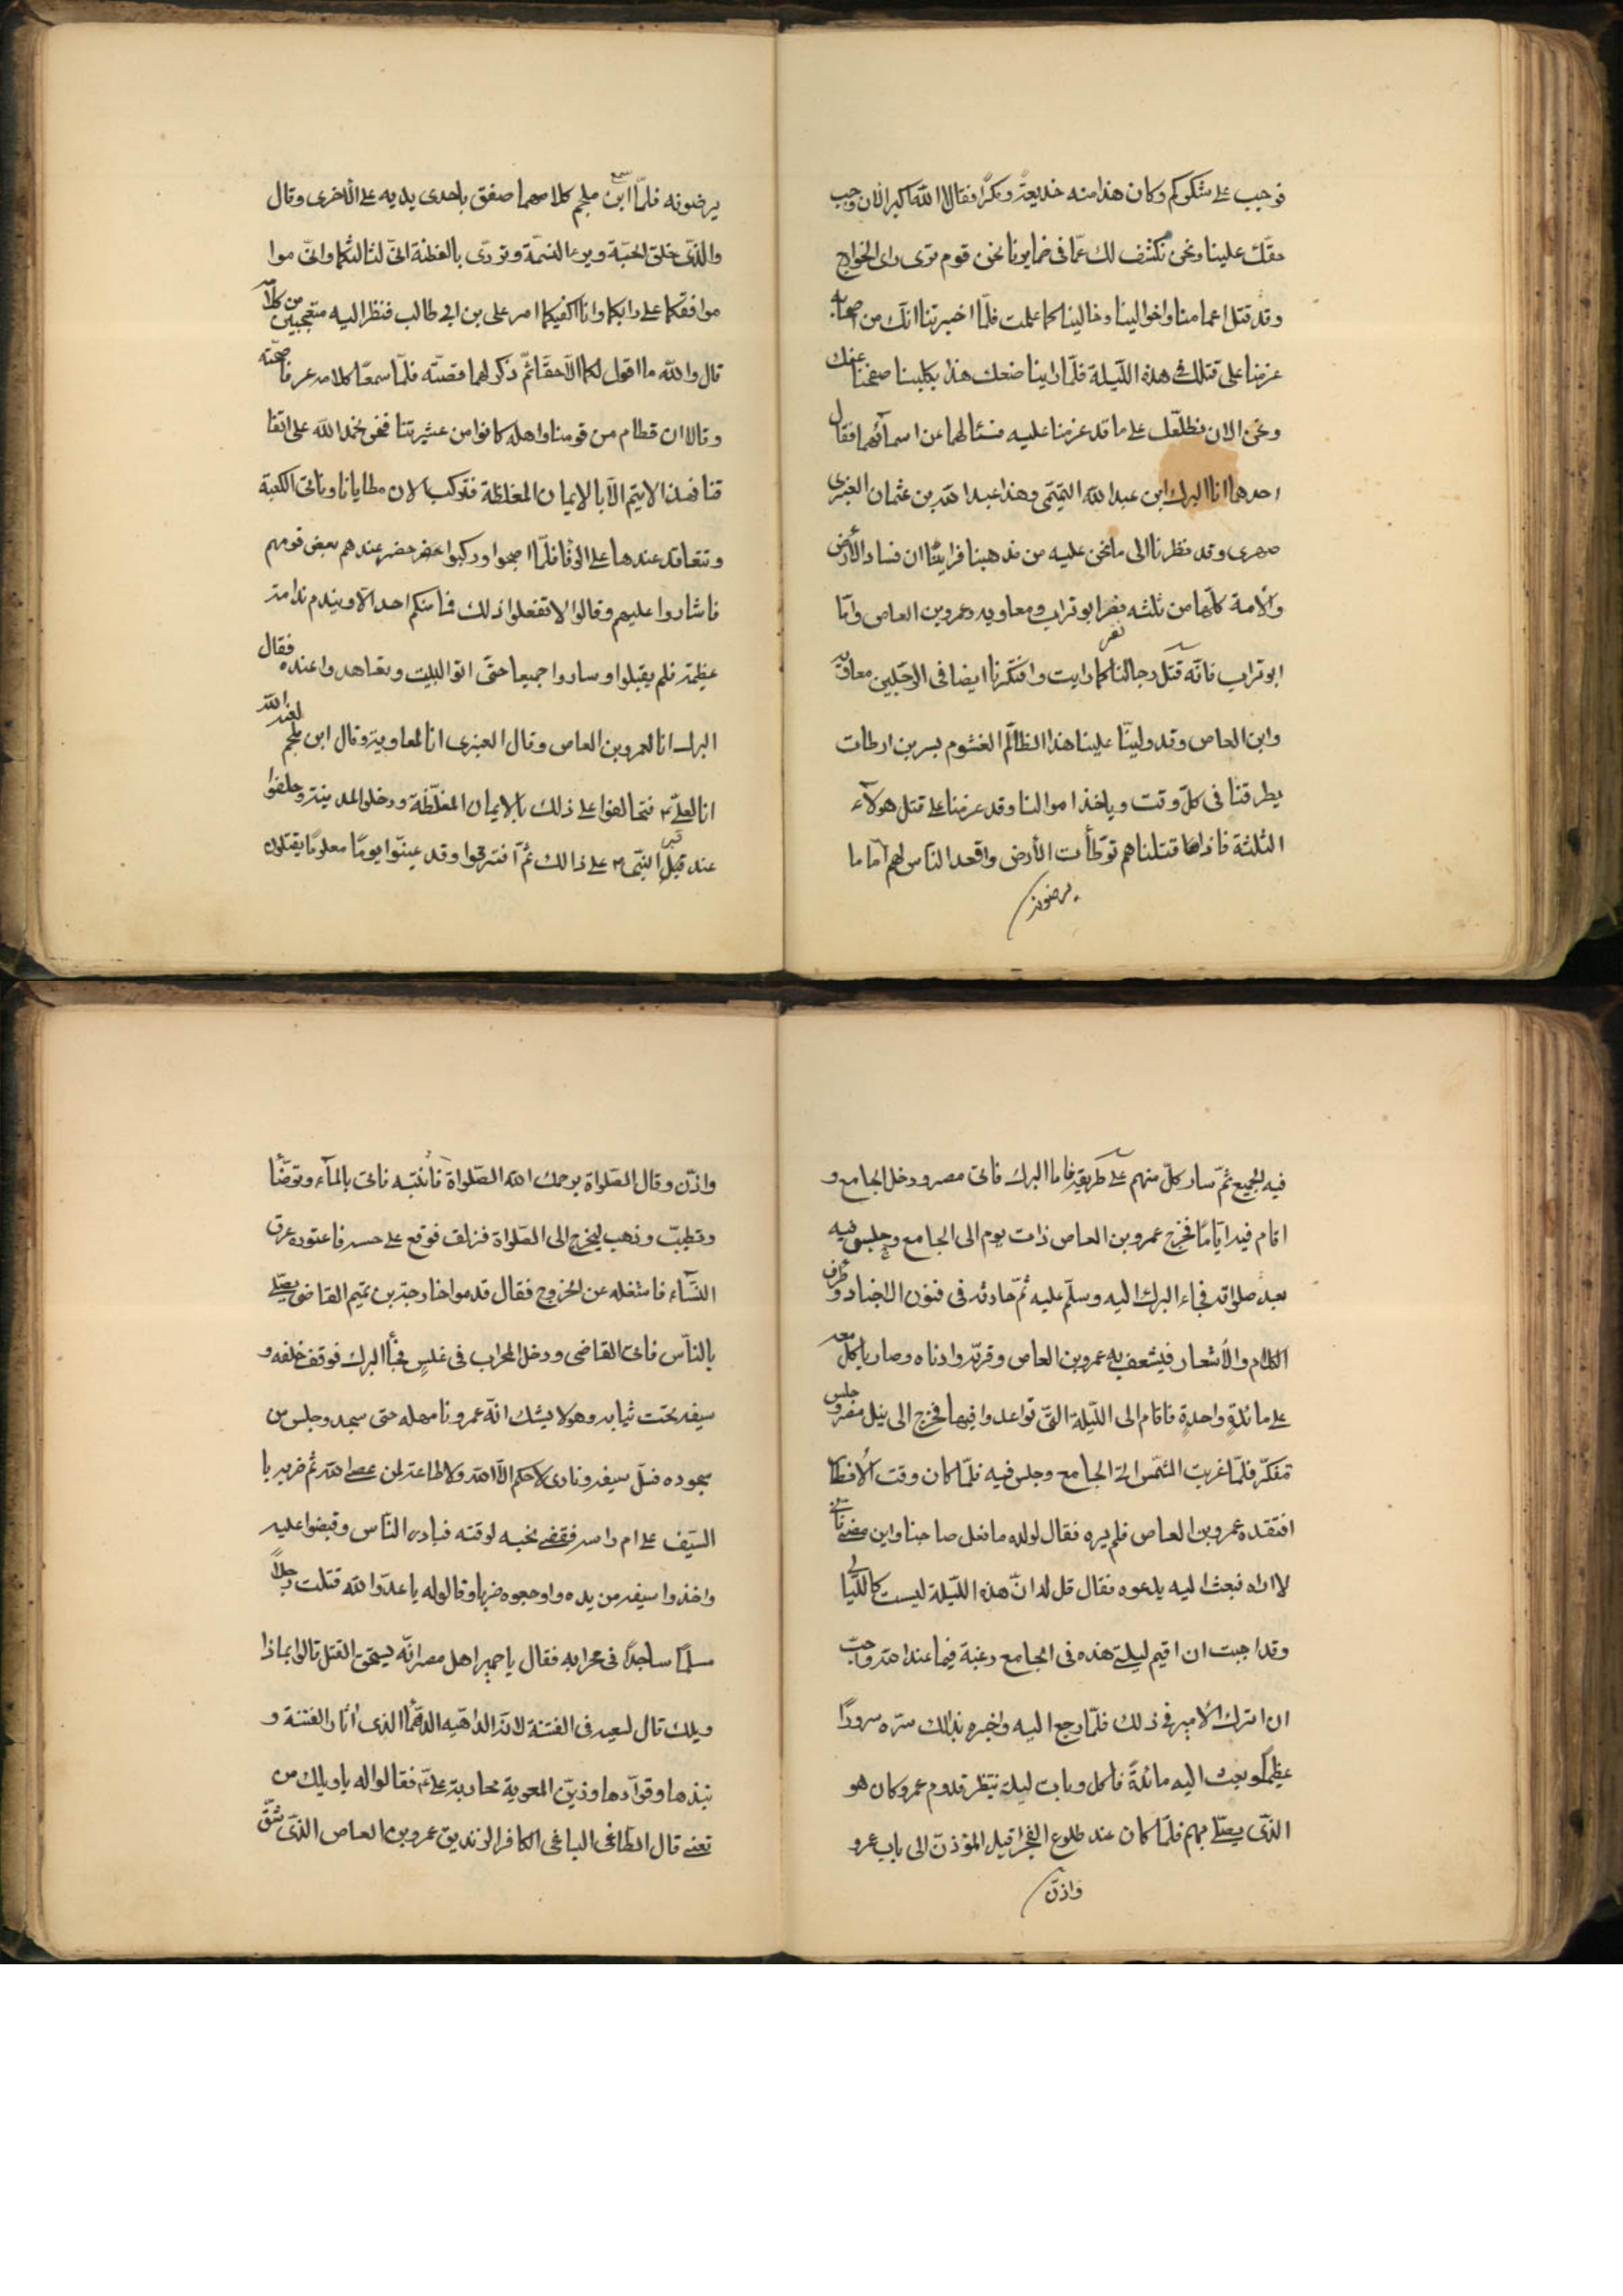 فوجب على شكوكم وكان هذا منه خديعة ومكرا فقالا الله اكبر الان وجب
حقك علينا ونحن نكشف لك عما فى ضمايرنا نحن قوم نرى راى الخوارج
وقد قتل اعمامنا واخوالينا وخالينا كما علمت فلما اخبرتنا انك من اصحابه
عزمنا على قتلك فى هذه الليلة فلما راينا صنعك هذا بكلبنا صفحنا عنك
ونحن الان نطلعك على ما قد عزمنا عليه فسئالهما عن اسمآئهما فقال
احدهما انا البرك ابن عبد الله التميمى وهذا عبد الله بن عثمان العنبرى
صهرى وقد نظرنا الى ما نحن عليه من مذهبنا فراينا ان فساد الأرض
والأمة كلها من ثلثه نفر ابو تراب ومعاويه وعمرو بن العاص واما
نفر
ابو تراب فانه قتل رجالنا كما رايت وافتكرنا ايضا فى الرجلين معاويه
وابن العاص وقد ولينا علينا هذا الظالم الغشوم بسر بن ارطات
يطرقنا فى كل وقت وياخذ اموالنا وقد عزمنا على قتل هولآء
الثلثة فاذا قتلناهم توطأت الأرض واقعد الناس لهم اماما
يرضونه
يرضونه فلما سمع ابن ملجم كلامهما صفق باحدى يديه على الاخرى وقال
والذى خلق الحبة وبرء النسمة وتردى بالعظمة انى لثالثكما وانى موا
موافقكما على رايكما وانا اكفيكما امر على بن ابى طالب فنظرا اليه متعجبين من كلامه
قال والله ما اقول لكما الا حقا ثم ذكر لهما قصته فلما سمعا كلامه عرفا صحته
وقالا ان قطام من قومنا واهله كانوا من عشيرتنا فنحن نحمد الله على اتفا
قنا فهذا لا يتم الا بالايمان المغلظة فنركب الان مطايانا وناتى الكعبة
ونتعاقد عندها على الوفا فلما اصبحوا وركبوا حضر عندهم بعض قومهم
فاشاروا عليهم وقالوا لا تفعلوا ذلك فما منكم احد الا ويندم ندامة
عظيمة فلم يقبلوا وساروا جميعا حتى اتوا البيت وتعاهدوا عنده فقال
البرك انا لعمرو بن العاص وقال العنبرى انا لمعاوية وقال ابن ملجم لعنه الله
انا لعلى فتحالفوا على ذلك بالايمان المغلظة ودخلوا المدينة وحلفوا
عند قبر النبى على ذالك ثم افترقوا وقد عينوا يوما معلوما يقتلون
فيه الجميع ثم سار كل منهم على طريقه فاما البرك فاتى مصر ودخل الجامع و
اقام فيه اياما فخرج عمرو بن العاص ذات يوم الى الجامع وجلس فيه
بعد صلواته فجاء البرك اليه وسلم عليه ثم حادثه فى فنون الاخبار وطرف
الكلام والأشعار فشعف به عمرو بن العاص وقربه وادناه وصار ياكل معه
على مائدة واحدة فاقام الى الليلة التى تواعدوا فيها فخرج الى نيل مصر وجلس
متفكر فلما غربت الشمس اتى الجامع وجلس فيه فلما كان وقت الأفطار
افتقده عمرو بن العاص فلم يره فقال لولده ما فعل صاحبنا واين مضى فانى
لا اراه فبعث اليه يدعوه فقال قل له ان هذه الليلة ليست كالليالى
وقد احببت ان اقيم ليلتى هذه فى الجامع رغبة فيما عند الله واحب
ان اشرك الأمير فى ذلك فلما رجع اليه واخبره بذالك سره سرورا
عظيما وبعث اليه مائدة فاكل وبات ليلة ينتظر قدوم عمرو كان هو
الذى يصلى بهم فلما كان عند طلوع الفجر اقبل المؤذن الى باب عمرو
واذن
واذن وقال الصلواة يرحمك الله الصلواة فانتبه فاتى بالمآء وتوضأ
وتطيب وذهب ليخرج الى الصلواة فزلق فوقع على جنبه فاعتوره عرق
النسآء فاشغله عن الخروج فقال قدموا خارجة بن تميم القاضى يصلى
بالناس فاتى القاضى ودخل المحراب فى غلس فجأ البرك فوقف خلفه و
سيفه تحت ثيابه وهو لا يشك انه عمرو فامهله حتى سجد وجلس من
سجوده فسل سيفه ونادى لا حكم الا الله ولا طاعة لمن عصى الله ثم ضربه با
السيف على ام راسه فقضى نحبه لوقته فبادر الناس وقبضوا عليه
واخذوا سيفه من يده واوجعوه ضربا وقالوا له يا عدو الله قتلت رجلا
مسلما ساجدا فى محرابه فقال يا حمير اهل مصر انه يستحق القتل قالوا بماذا
ويلك قال لسعيه فى الفتنة لانه الداهيه الدهمآ الذى اثار الفتنة و
نبذها وقوآدها وزين لمعوية محاربة على فقالوا له يا ويلك من
تعنى قال الطاغى الباغى الكافر الزنديق عمرو بن العاص الذى شق